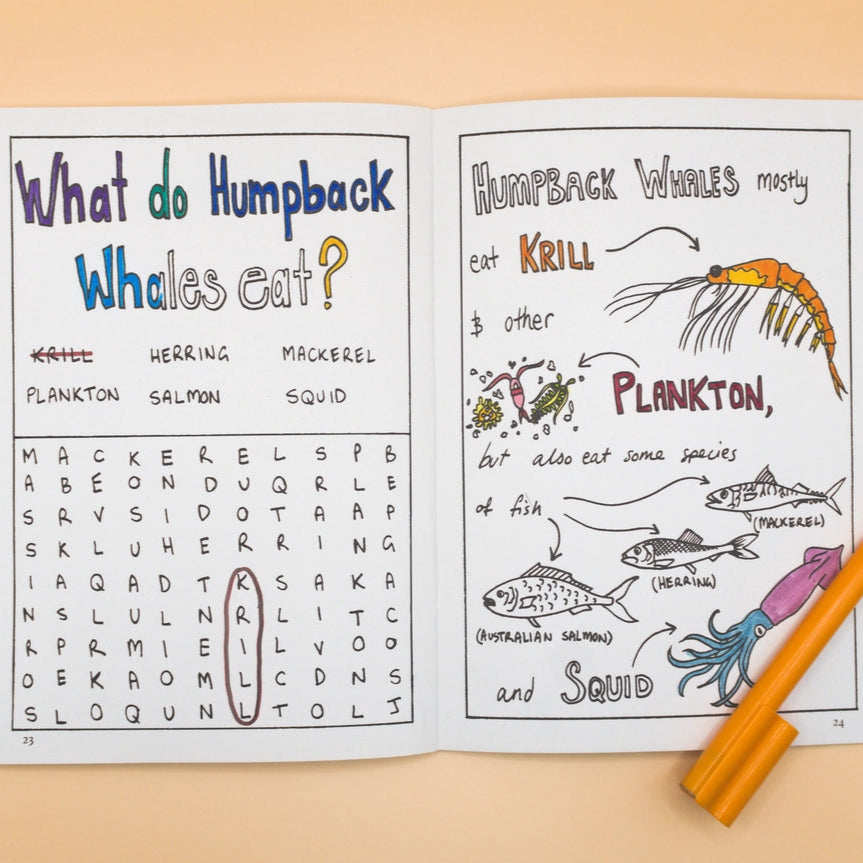 What do Humpback
Whales eat?
KRILL HERRING MACKEREL
PLANKTON SALMON SQUID
M A C K E R E L S P B
A B E O N D U Q R L E
S R V S I D O T A A P
S K L U H E R R I N G
I A Q A D T K S A K A
N S L U L N R L I T C
R P R M I E I L V O O
O E K A O M L C D N S
S L O Q U N L T O L J
23
HUMPBACK WHALES mostly
eat KRILL
& other
PLANKTON,
but also eat some species
of fish
(MACKEREL)
(HERRING)
(AUSTRALIAN SALMON)
and SQUID
24